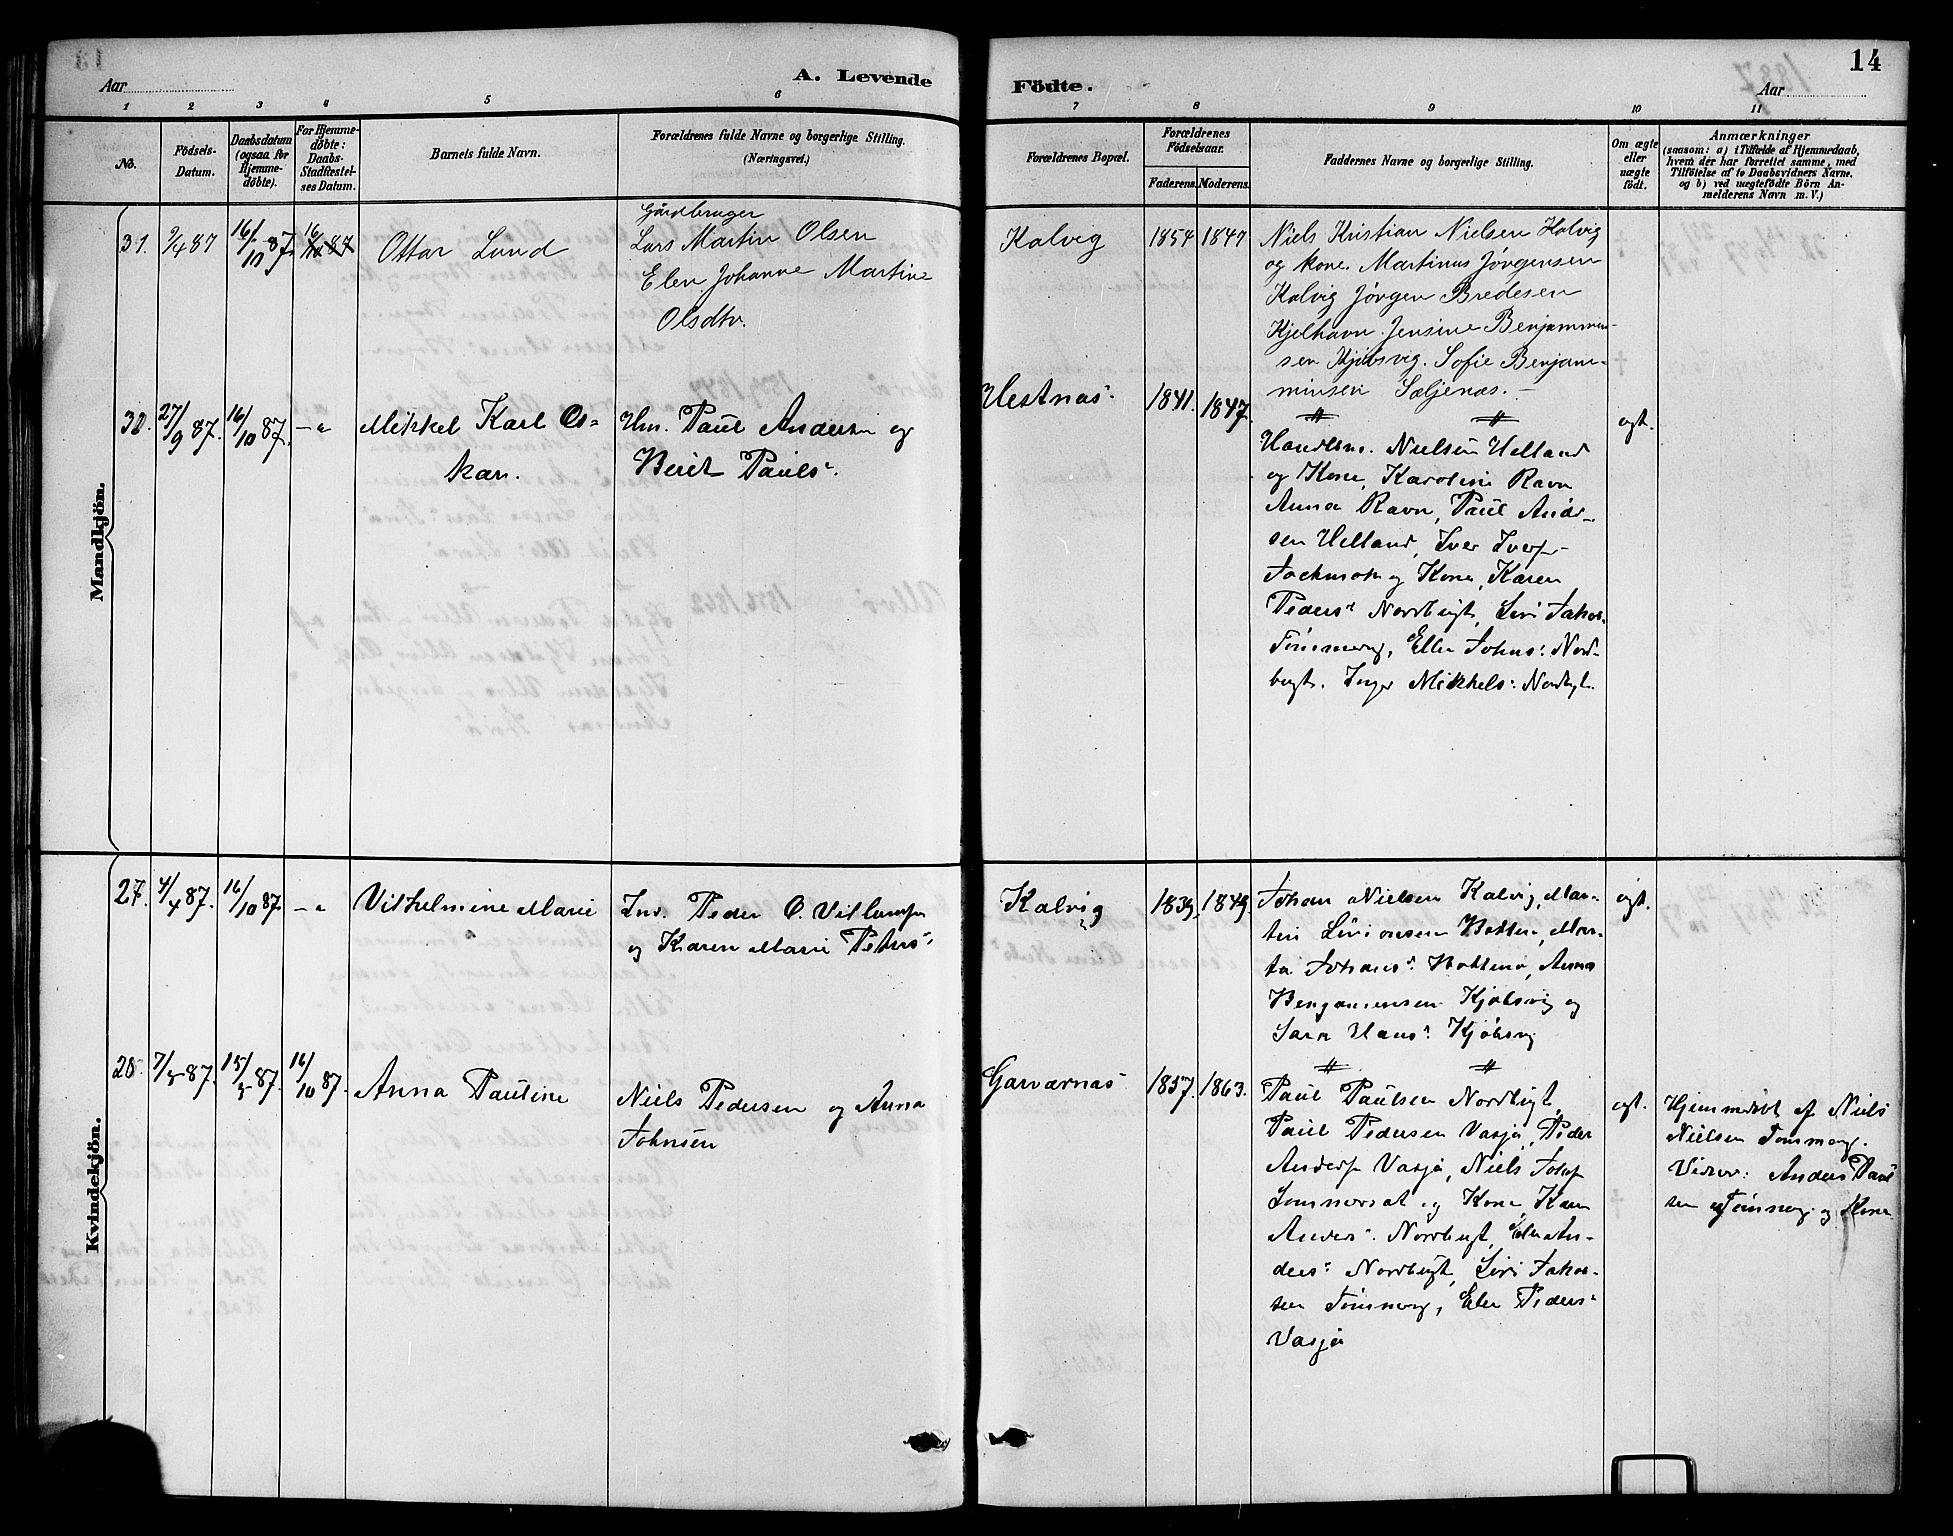 14
A. Levende Födte.
Aar
Aar
1 2 3 4 5 6 7 8 9 10 11
No.
Födsels-
Datum.
Daabsdatum
(ogsaa for
Hjemme-
døbte).
For Hjemme-
døbte:
Daabs-
Stadfæstel-
ses Datum.
Barnets fulde Navn.
Forældrenes fulde Navne og borgerlige Stilling.
(Næringsvei.)
Forældrenes Bopæl.
Forældrenes
Födselsaar.
Faderens. Moderens.
Faddernes Navne og borgerlige Stilling.
Om ægte
eller
uægte
født.
Anmærkninger
(saasom: a) i Tilfælde af Hjemmedaab,
hvem der har forrettet samme, med
Tilföielse af to Daabsvidners Navne,
og b) ved uægtefödte Börn An-
melderens Navn m. V.)
Mandkjön.
31. 9/4 87 16/10 87. 16
Ottar Lund
Gårdbruger
Lars Martin Olsen
Elen Johanne Martine
Olsdtr.
Kalvig
1854 1847
Niels Kristian Nielsen Kalvig
og kone. Martinus Jørgensen
Kalvig Jörgen Bredesen
Kjelhavn. Jensine Benjammen-
sen Kjöbsvig. Sofie Benjam-
minsen Sæljenæs.
32. 27/9 87. 16/10 87. -"
Mikkel Karl Os-
kar.
Paul Andersen og
Berit Pauls:
Vestnæs:
1841. 1847.
Nielsen Helland
og Kone, Karoline Ravn
Anna Ravn, Paul Andr-
sen Helland, Iver
og Kone, Karen
Peders: Nordbugt, Siri Jakob-
Tömmerg, Ellen Johns: Nord-
bugt. Inger Mikkels: Nordbgt.
egt.
Kvindekjön.
27. 4/4 87. 16/10 87. -"
Vilhelmine Marie
Inv. Peder O.
og Karen Marie Peters:
Kalvig
1839. 1849.
Johan Nielsen Kalvig, Mar-
tin Botten, Mar-
ta Johans: Anna
Benjaminsen Kjöbsvig og
Sara Hans: Kjöbsvig
egt.
28. 7/3 87. 15/3 87. 16/10 87.
Anna Pauline
Niels Pedersen og Anna
Johnsen
Garvarnæs
1857. 1863.
Paul Paulsen Nordbugt,
Paul Pedersen Vasja, Peder
Vasja, Niels
og Kone, Karen
Anders: Nordbugt, Elen An-
ders: Nordbugt, Siri Jakob-
sen Tömmerg, Elen Peders:
Vasja
egt.
Hjemmedöbt af Niels
Nielsen Tömmerg.
Vidner: Anders Paul
sen Tömmerg og Kone